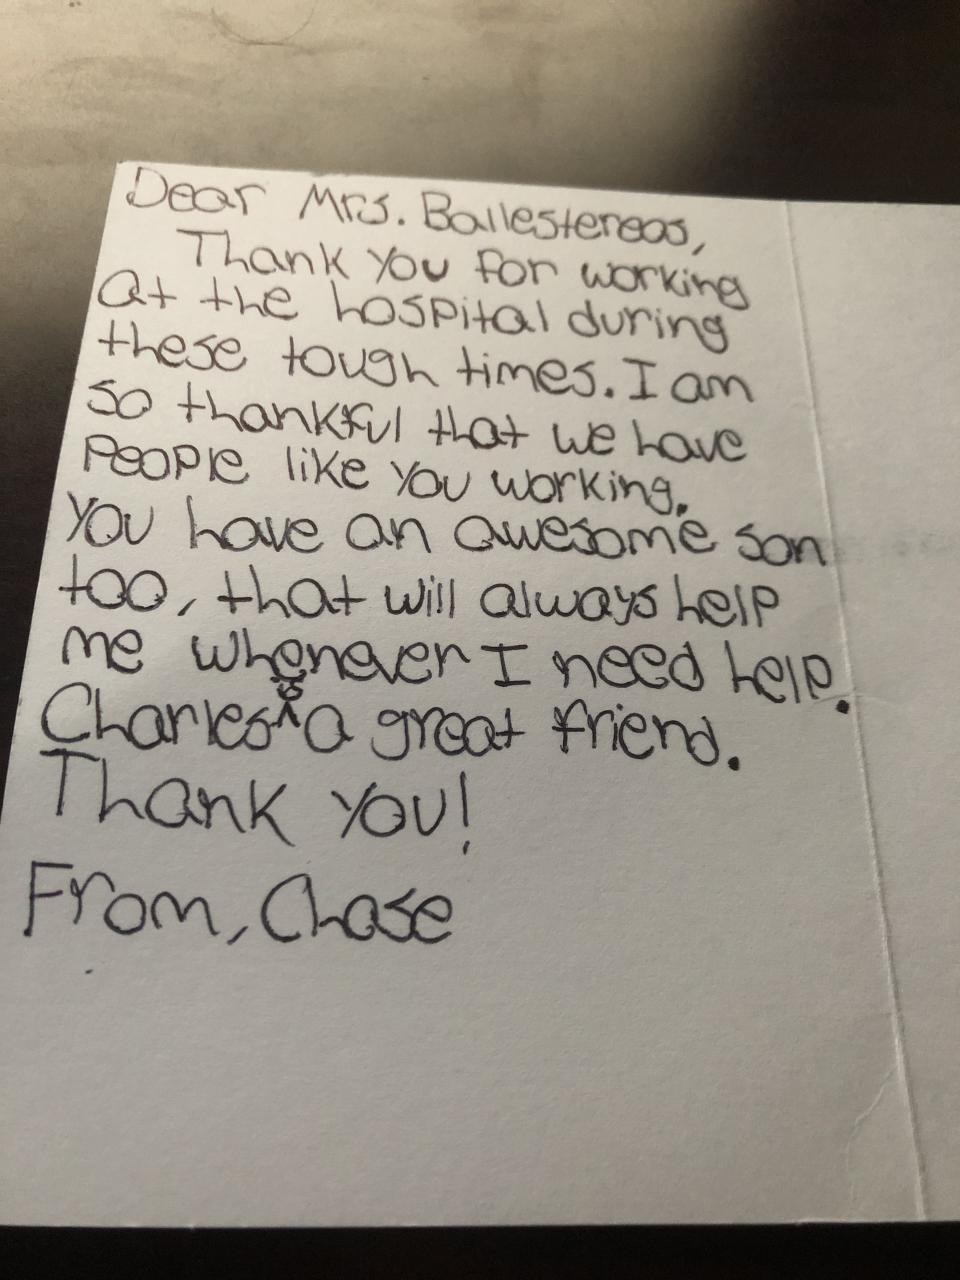 Dear Mrs. Ballestereos,
Thank you for working
at the hospital during
these tough times. I am
so thankful that we have
People like you working.
You have an awesome son
too, that will always help
me whenever I need help.
Charles is a great friend.
Thank you!
From, Chase